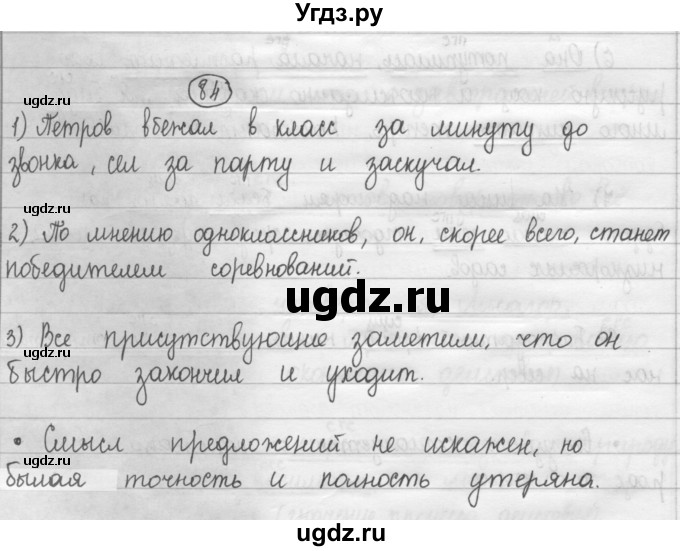 Угдз.ру
84
1) Петров вбежал в класс за минуту до
звонка, сел за парту и заскучал.
2) По мнению одноклассников, он, скорее всего, станет
победителем соревнований.
3) Все присутствующие заметили, что он
быстро закончил и уходит.
• Смысл предложений не искажен, но
былая точность и полность утеряна.
ugdz.ru
ugdz.ru
ugdz.ru
ugdz.ru
ugdz.ru
ugdz.ru
ugdz.ru
ugdz.ru
ugdz.ru